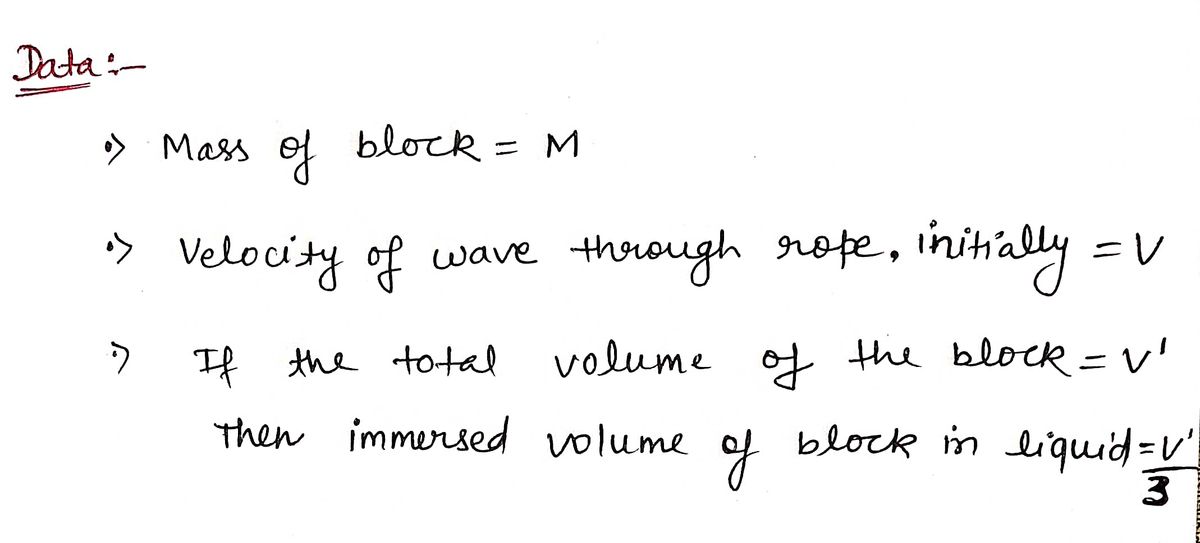 Data :-
•> Mass of block = M
•> Velocity of wave through rope, initially = V
•> If the total volume of the block = V'
Then immersed volume of block in liquid = V'/3